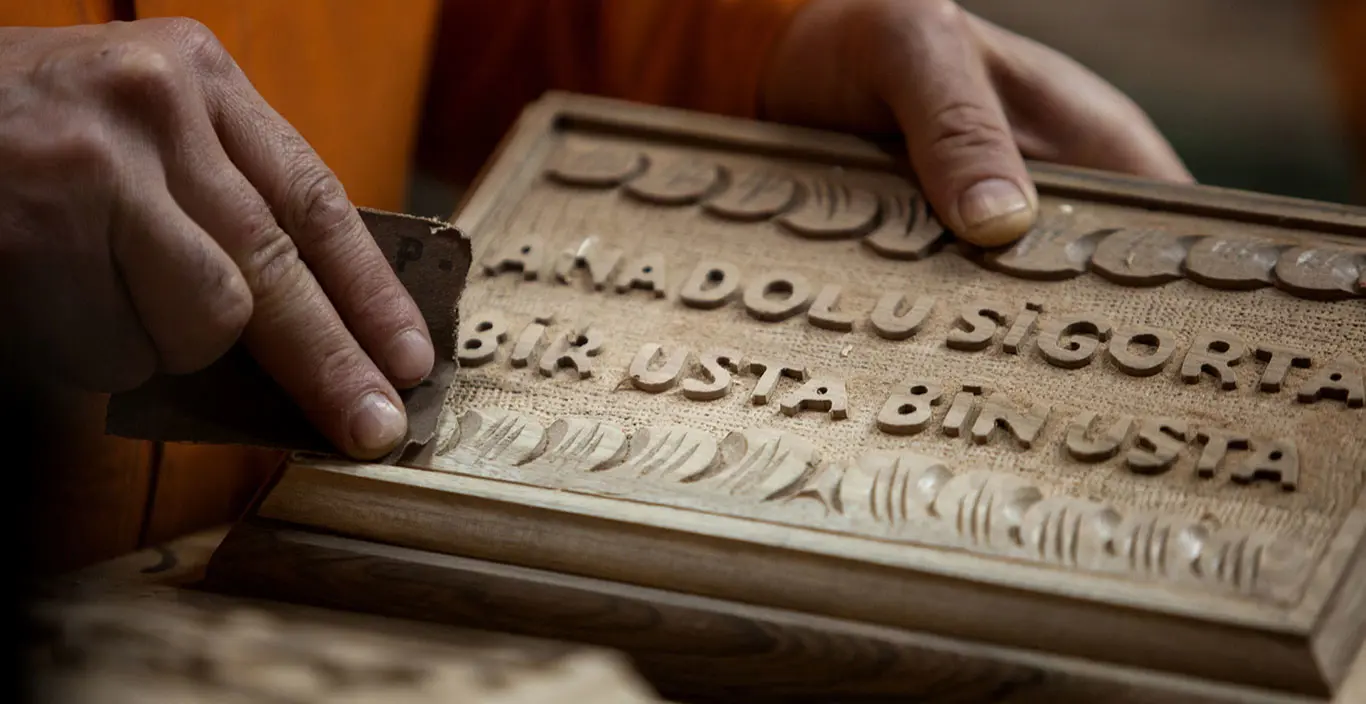 ANADOLU SİGORTA
BİK USTA BİN USTA
P